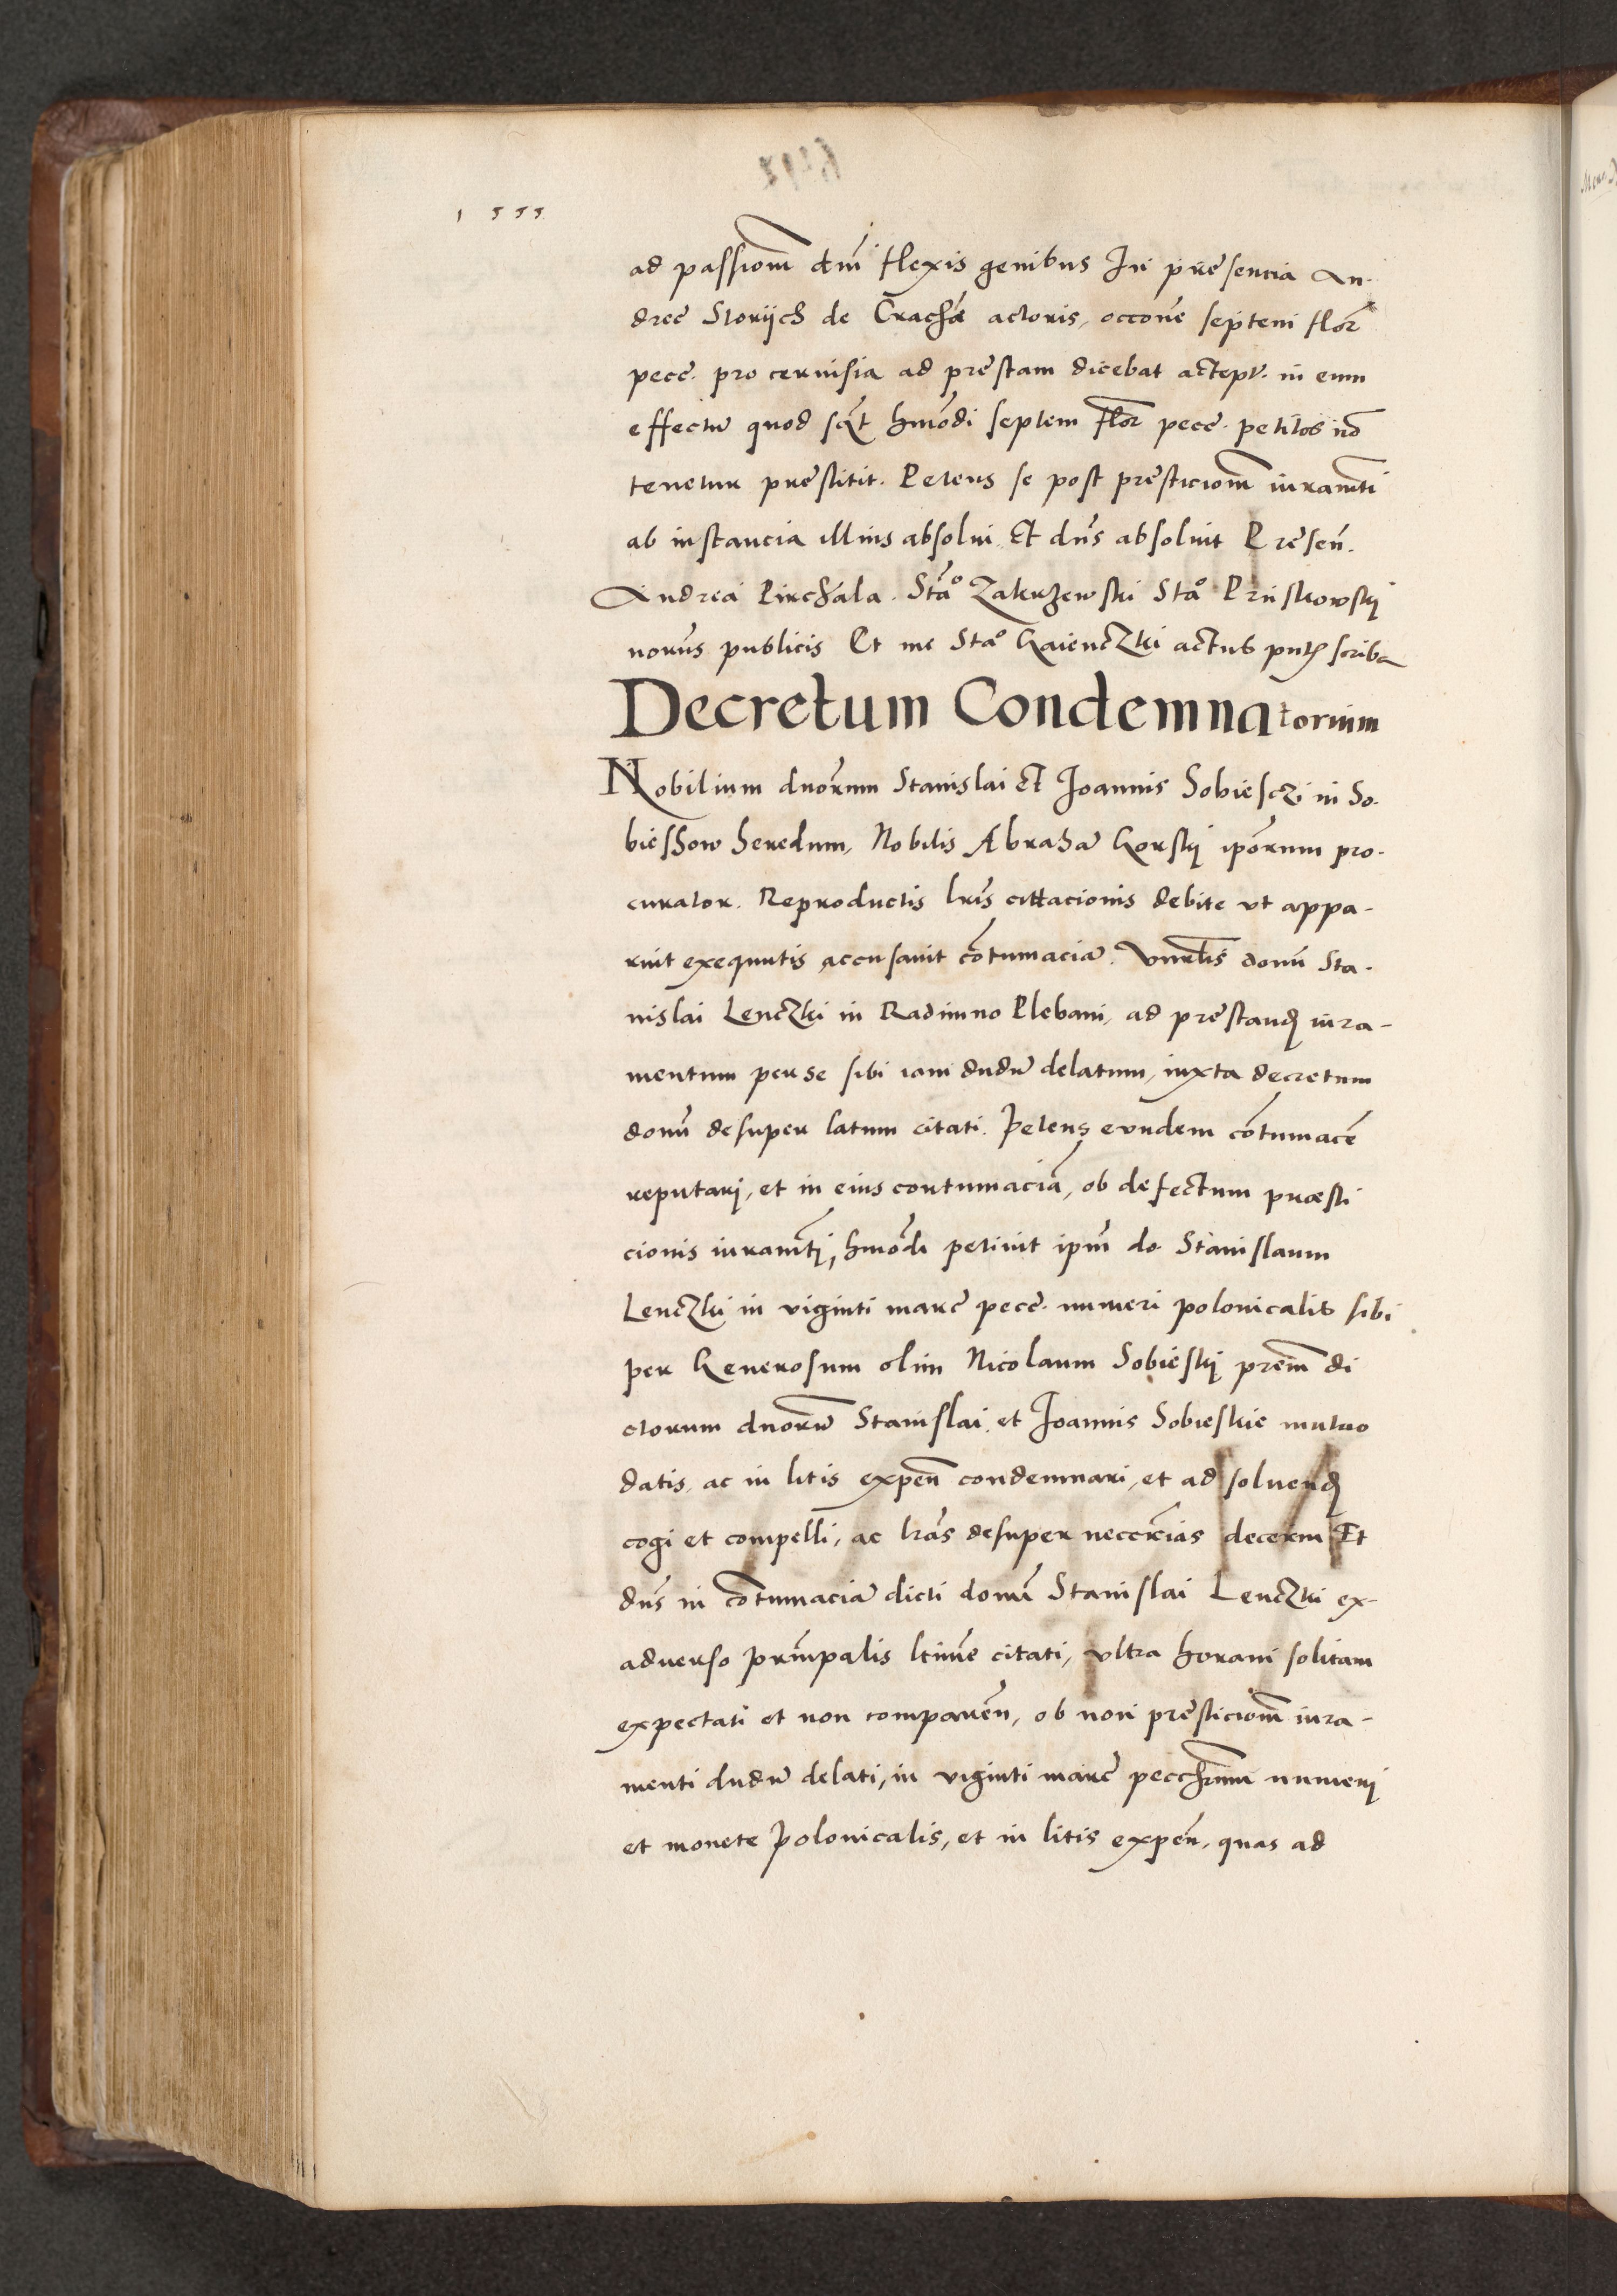 1555
ad passionē dm̄i flexis genibus In presencia An-
dree Storijch de Crachā actoris, occone septem flor̄
pecc̄. pro ceruisia ad prestam dicebat accept. in eum
effectū quod sc̄t hmōdi septem flor̄ pecc̄. petitos nō
tenetur prestitit. Petens se post presticionē iuramt̄i
ab instancia illius absolui. Et dn̄s absoluit Presen̄.
Andrea Pirchala. Stāo Zakrzewski Stāo Pruskowskj
norūs publicis Et me Stāo Gaienczki actus pntis scriba
Decretum Condemnatorium
Nobilium dnōrum Stanislai et Joannis Sobiesczi in So-
biesshow heredum, Nobilis Abrahā Gorskj ipōrum pro-
curator. Reproductis lrīs cittacionis debite vt appa-
ruit exequutis accusauit cōtumaciā. Vnrlis donī Sta-
nislai Lenczki in Radimno Plebani, ad prestand iura-
mentum per se sibi iam dudū delatum, iuxta decretum
donī desuper latum citati. Petens eundem cōtumacē
reputarj, et in eius contumaciā, ob defectum præsti
cionis iuramt̄j, hmōdi petiuit ipm̄ do. Stanislaum
Lenczki in viginti marc̄ pecc̄. numeri polonicalis sibi
per Generosum olim Nicolaum Sobieskj prem̄ di
ctorum dnōrū Stanislai et Joannis Sobieskie mutuo
datis, ac in litis expen̄ condemnari, et ad soluend
cogi et compelli, ac lrās desuper neccr̄ias decerni Et
dn̄s in cōtumaciā dicti donī Stanislai Lenczki ex-
aduerso prin̄palis ltime citati, vltra horam solitam
expectati et non comparen̄, ob non presticionē iura-
menti dudū delati, in viginti marc̄ pecchr̄um numerj
et monete Polonicalis, et in litis expen̄, quas ad